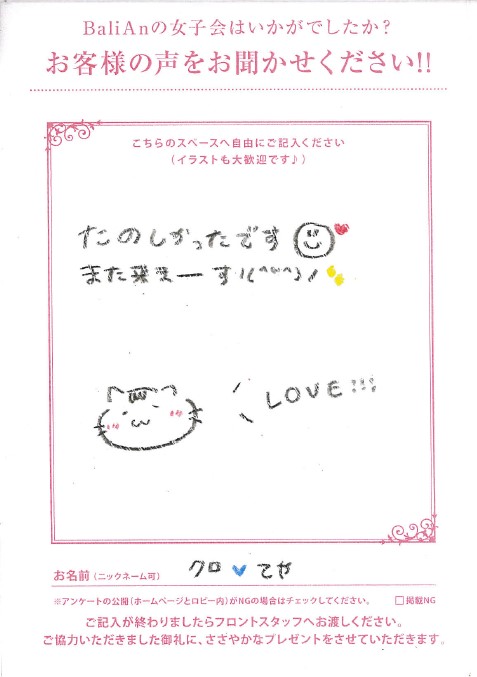 BaliAnの女子会はいかがでしたか？
お客様の声をお聞かせください!!
こちらのスペースへ自由にご記入ください
（イラストも大歓迎です♪）
たのしかったです
また来まーす!(^ω^)ノ
LOVE!!!
お名前（ニックネーム可） クロ♥てや
※アンケートの公開（ホームページとロビー内）がNGの場合はチェックしてください。 □掲載NG
ご記入が終わりましたらフロントスタッフへお渡しください。
ご協力いただきました御礼に、ささやかなプレゼントをさせていただきます。